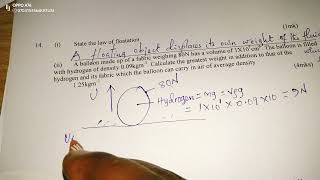 OPPO A76
(1mk)
14. (i) State the law of floatation
A floating object displaces its own weight of the fluid
(ii) A balloon made up of a fabric weighing 80N has a volume of 1X10¹cm³. The balloon is filled
with hydrogen of density 0.09kgm⁻. Calculate the greatest weight in addition to that of the
hydrogen and its fabric which the balloon can carry in air of average density
1.25kgm (4mks)
U
80N
Hydrogen = mg = Vρg
= 1X10¹ X 0.09 X 10 = 9N
U